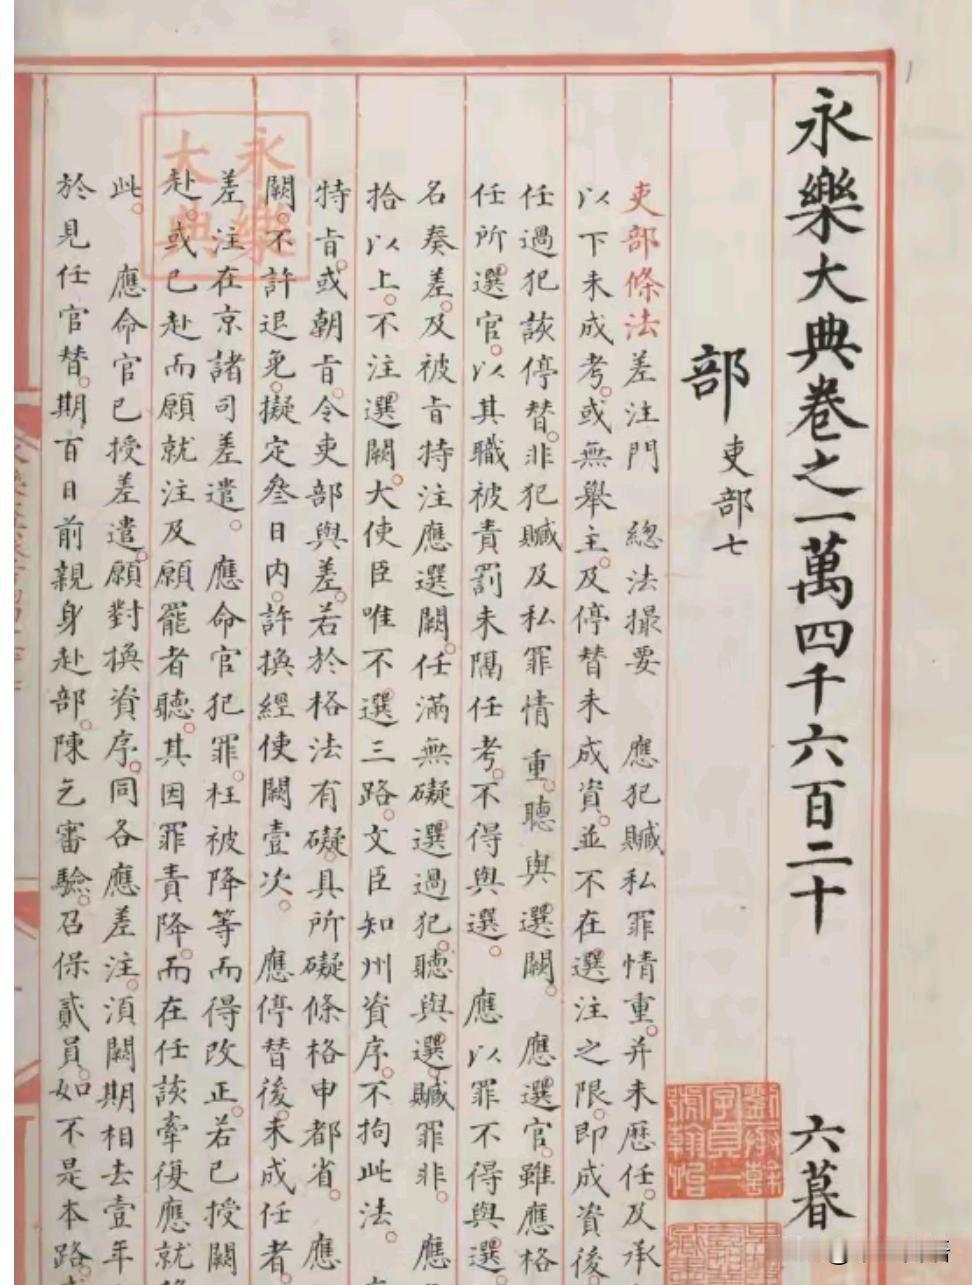 永樂大典卷之一萬四千六百二十 六暮
部 吏部七
吏部條法差注門 總法撮要 應犯贓私罪情重。并未歷任。及承
以下未成考。或無舉主。及停替未成資。並不在選注之限。即成資後
任過犯該停替。非犯贓及私罪情重。聽與選闕。 應選官。雖應格
任所選官。以其職被責罰未隔任考。不得與選。 應以罪不得與選。
名奏差。及被旨特注應選闕。任滿無礙選過犯。聽與選。贓罪非。 應
拾以上。不注選闕。大使臣唯不選三路。文臣知州資序。不拘此法。
特旨。或朝旨。令吏部與差。若於格法有礙。具所礙條格申都省。 應
闕。不許退免。擬定叄日內。許換經使闕壹次。 應停替後。未成任者。
差注在京諸司差遣。 應命官犯罪。枉被降等而得改正。若已授闕
赴。或已赴而願就注及願罷者聽。其因罪責降。而在任該牽復應就
此。 應命官已授差遣。願對換資序。同各應差注。須闕期相去壹年
於見任官替。期百日前親身赴部。陳乞審驗。召保貳員。如不是本路
永樂大典